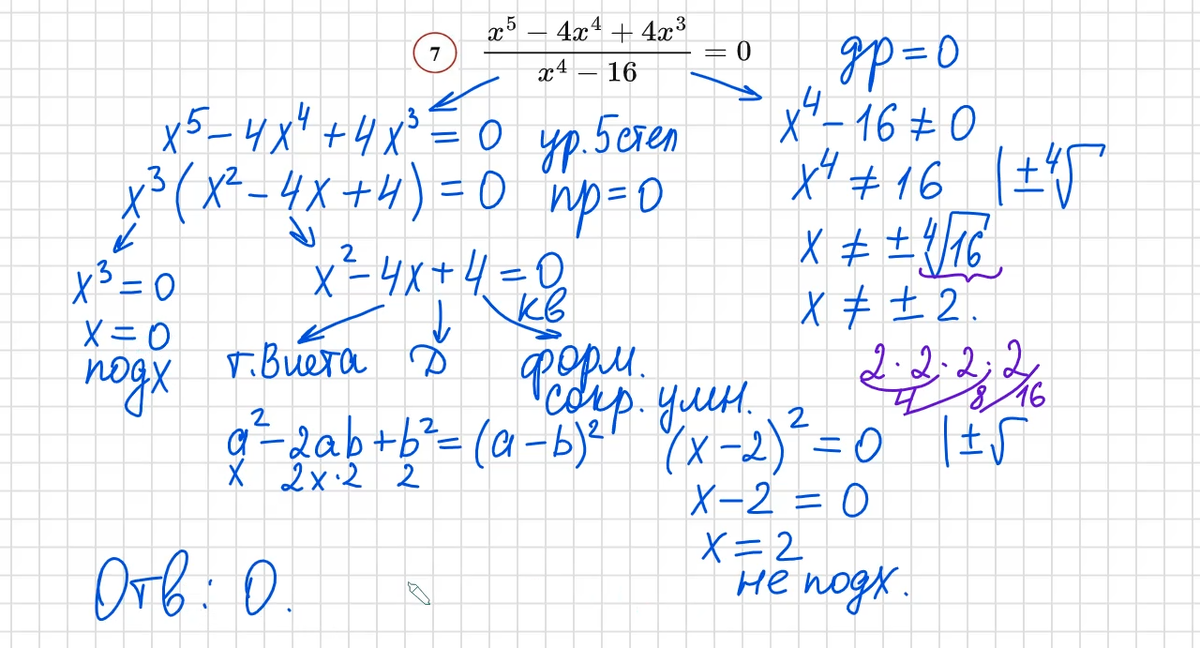 7 (x⁵ − 4x⁴ + 4x³)/(x⁴ − 16) = 0
др = 0
x⁵ − 4x⁴ + 4x³ = 0 ур. 5 степ
x³(x² − 4x + 4) = 0 пр = 0
x³ = 0
x = 0
подх
x² − 4x + 4 = 0
кв
т. Виета Д форм.
сокр. умн.
a² − 2ab + b² = (a − b)²
x 2x·2 2
(x − 2)² = 0 | ±√
x − 2 = 0
x = 2
не подх.
x⁴ − 16 ≠ 0
x⁴ ≠ 16 | ±⁴√
x ≠ ±⁴√16
x ≠ ± 2.
2 · 2 · 2 · 2
4 8 16
Отв: 0.